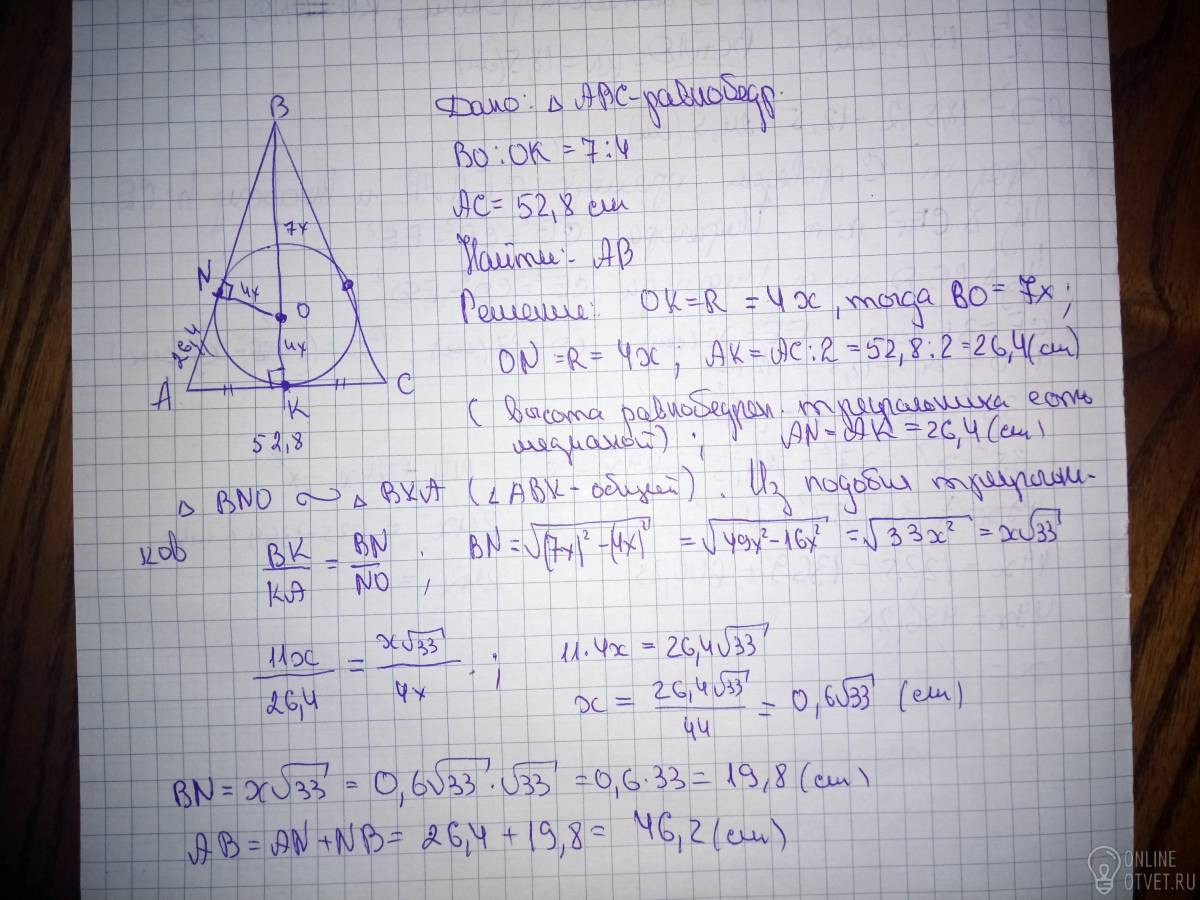 B
7x
N
4x
O
4x
26,4
A
K
C
52,8
Дано: △ ABC-равнобедр.
BO:OK = 7:4
AC = 52,8 см
Найти:- AB
Решение: OK=R = 4x, тогда BO = 7x;
ON=R=4x; AK=AC:2=52,8:2=26,4(см)
(высота равнобедрен. треугольника есть
медианой); AN=AK=26,4(см)
△ BNO ~ △ BKA (∠ABK-общий). Из подобия треугольни-
ков BK/KA = BN/NO; BN=√((7x)²-(4x)²) = √(49x²-16x²) = √(33x²) = x√33
11x/26,4 = x√33/4x; 11·4x = 26,4√33
x = 26,4√33/44 = 0,6√33 (см)
BN = x√33 = 0,6√33·√33 = 0,6·33 = 19,8 (см)
AB = AN+NB = 26,4+19,8 = 46,2 (см)
ONLINE
OTVET.RU